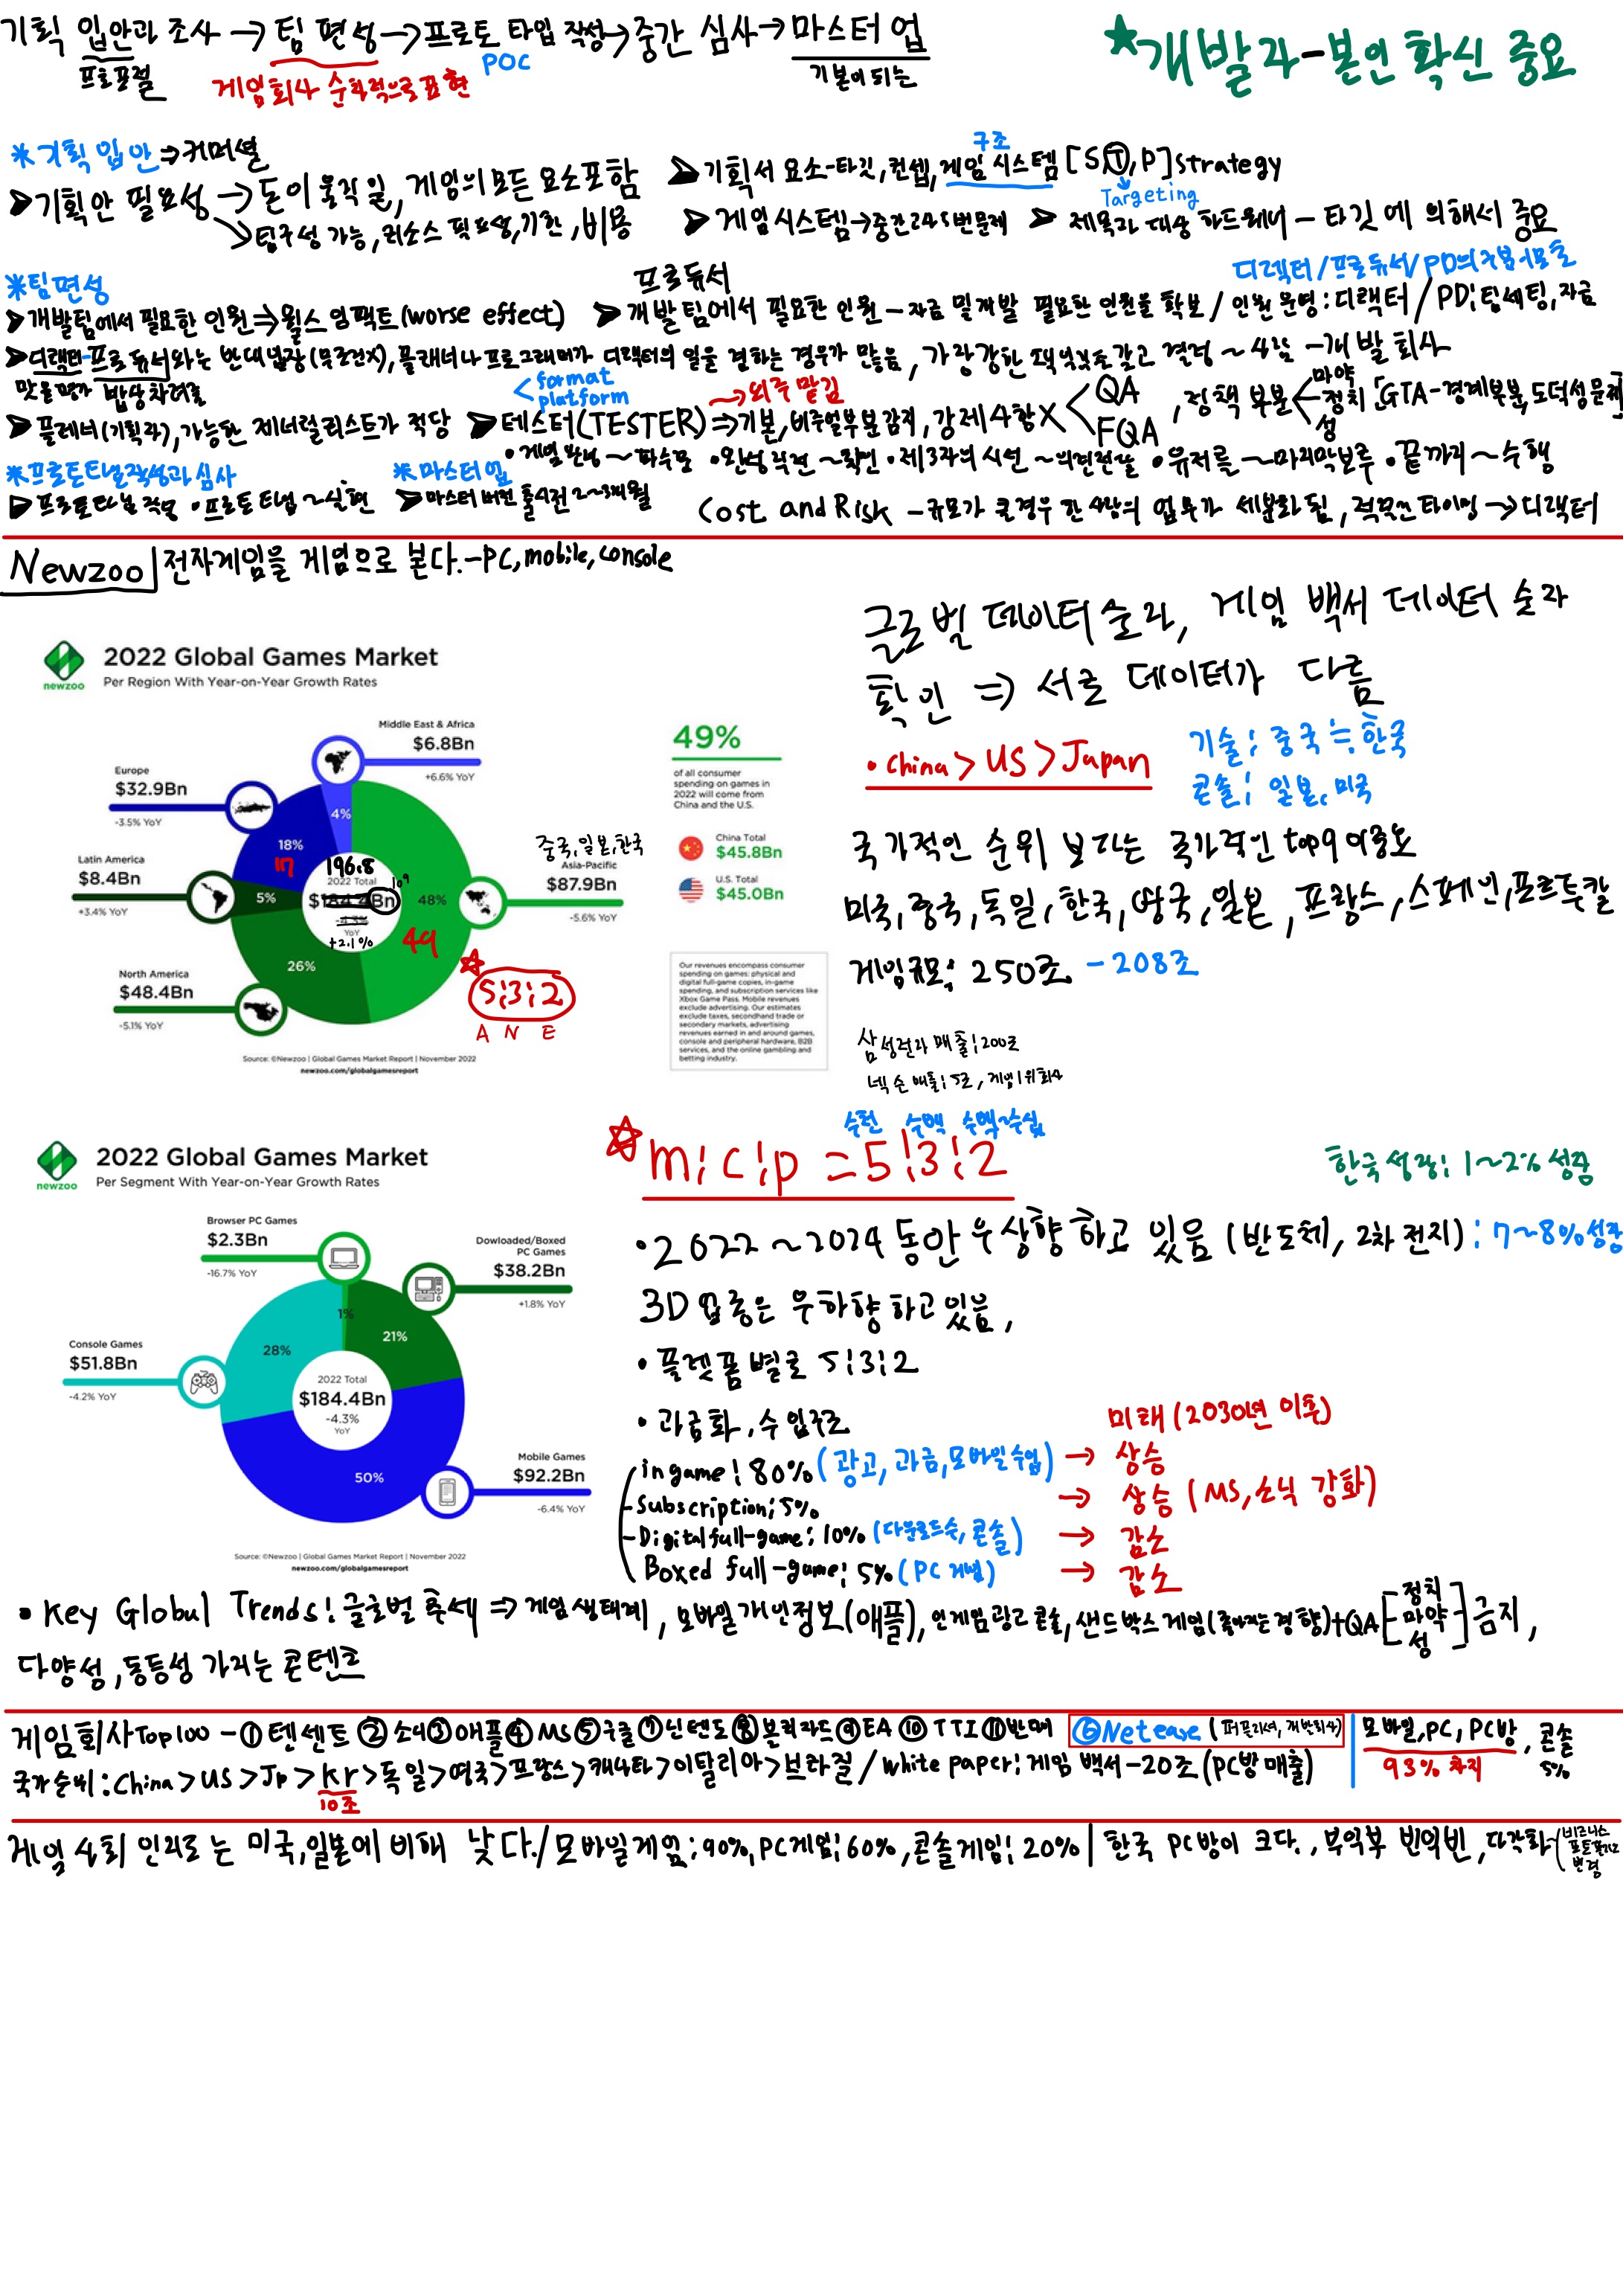 기획 입안과 조사 → 팀 편성 → 프로토 타입 작성 → 중간 심사 → 마스터 업
프로포절
게임회사 순차적으로 표현
POC
기본이 되는
★개발자-본인 확신 중요
*기획 입안 ⇒ 커머셜
➤기획안 필요성 → 돈이 움직일, 게임의 모든 요소포함
↘팀구성 가능, 리소스 필요성, 기한, 비용
구조
➤기획서 요소-타깃, 컨셉, 게임 시스템 [S,T,P] strategy
Targeting
➤게임시스템→중간245번문제
➤제목과 대상 하드웨어 - 타깃에 의해서 중요
*팀편성
프로듀서
디렉터/프로듀서/PD의 구분
➤개발팀에서 필요한 인원⇒월스 임팩트(worse effect)
➤개발팀에서 필요한 인원-자금 및 개발 필요한 인원을 확보 / 인원 운영:디랙터 / PD:팀세팅, 자금
➤디랙터-프로듀서와는 반대입장(무조건X), 플래너나 프로그래머가 디랙터의 일을 겸하는 경우가 많음, 가장강한 책임감을 갖고 결정~사람 -개발 회사
맛을 평가 밥상차려줌
format
platform
→외주 맡김
➤플레너(기획자), 가능한 제너럴리스트가 적당
➤테스터(TESTER)⇒기본, 비주얼부분감지, 강제사항X
QA
FQA
, 정책 부분
마약
정치
성
[GTA-경계부분, 도덕성문제]
•게임 완성~파수꾼 •완성직전~확인 •제3자의 시선~의견전달 •유저를~마지막보루 •끝까지~수행
*프로토타입작성과 심사
*마스터 업
➤프로토타입 작성 •프로토타입~실현
➤마스터 버전 출시전 2~3개월
Cost and Risk -규모가 클경우 한사람의 업무가 세분화 됨, 적절한 타이밍→디랙터
Newzoo | 전자게임을 게임으로 본다.-PC, mobile, console
newzoo
2022 Global Games Market
Per Region With Year-on-Year Growth Rates
Middle East & Africa
$6.8Bn
+6.6% YoY
Europe
$32.9Bn
-3.5% YoY
Latin America
$8.4Bn
+3.4% YoY
North America
$48.4Bn
-5.1% YoY
중국, 일본, 한국
Asia-Pacific
$87.9Bn
-5.6% YoY
4%
18%
17
5%
26%
48%
49
196.8
2022 Total
$184.4Bn
10⁹
-4.3%
YoY
+2.1%
5:3:2
A N E
49%
of all consumer
spending on games in
2022 will come from
China and the U.S.
China Total
$45.8Bn
U.S. Total
$45.0Bn
Our revenues encompass consumer
spending on games: physical and
digital full-game copies, in-game
spending, and subscription services like
Xbox Game Pass. Mobile revenues
exclude advertising. Our estimates
exclude taxes, secondhand trade or
secondary markets, advertising
revenues earned in and around games,
console and peripheral hardware, B2B
services, and the online gambling and
betting industry.
Source: ©Newzoo | Global Games Market Report | November 2022
newzoo.com/globalgamesreport
글로벌 데이터 숫자, 게임 백서 데이터 숫자
확인 ⇒ 서로 데이터가 다름
•China > US > Japan
기술: 중국≒한국
콘솔: 일본, 미국
국가적인 순위 보다는 국가적인 top9 이중요
미국, 중국, 독일, 한국, 영국, 일본, 프랑스, 스페인, 포르투갈
게임규모: 250조 - 208조
삼성전자 매출: 200조
넥슨 매출: 5조, 게임1위회사
newzoo
2022 Global Games Market
Per Segment With Year-on-Year Growth Rates
Browser PC Games
$2.3Bn
-16.7% YoY
Dowloaded/Boxed
PC Games
$38.2Bn
+1.8% YoY
Console Games
$51.8Bn
-4.2% YoY
Mobile Games
$92.2Bn
-6.4% YoY
1%
21%
28%
50%
2022 Total
$184.4Bn
-4.3%
YoY
Source: ©Newzoo | Global Games Market Report | November 2022
newzoo.com/globalgamesreport
수천 수백 수백~수십
☆m:c:p = 5:3:2
한국 성장: 1~2% 성장
•2022~2024 동안 우상향 하고 있음 (반도체, 2차 전지): 7~8% 성장
3D 업종은 우하향 하고 있음,
•플렛폼 별로 5:3:2
•과금화, 수입구조
미래(2030년 이후)
in game: 80% (광고, 과금, 모바일수입) → 상승
-Subscription: 5% → 상승 (MS, 소닉 강화)
-Digital full-game: 10% (다운로드수, 콘솔) → 감소
Boxed full-game: 5% (PC 게임) → 감소
•Key Global Trends: 글로벌 추세 ⇒ 게임 생태계, 모바일 개인정보(애플), 인게임 광고 콘솔, 샌드박스 게임(좋아지는 경향)+QA[정치 마약 성] 금지,
다양성, 동등성 가지는 콘텐츠
게임회사Top100 -①텐센트 ②소니 ③애플 ④MS ⑤구글 ⑦닌텐도 ⑧블리자드 ⑨EA ⑩TTI ⑪반메 ⑥Netease (퍼블리셔, 개발회사) | 모바일, PC, PC방, 콘솔
93% 차지
5%
국가순위: China > US > Jp > kr > 독일 > 영국 > 프랑스 > 캐나다 > 이탈리아 > 브라질 / white paper: 게임 백서-20조 (PC방 매출)
10조
게임 사회 인지도는 미국, 일본에 비해 낮다./모바일게임: 90%, PC게임: 60%, 콘솔게임: 20% | 한국 PC방이 크다., 부익부 빈익빈, 다각화
비즈니스
포트폴리오
변경